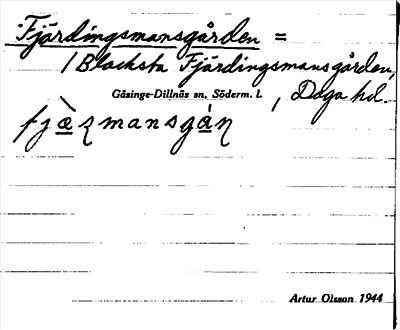 Fjärdingsmansgården =
/ Blacksta Fjärdingsmansgården,
Gåsinge-Dillnäs sn, Söderm. l. , Daga hd.
fjæ̀ʐmansgànˌ
Artur Olsson 1944